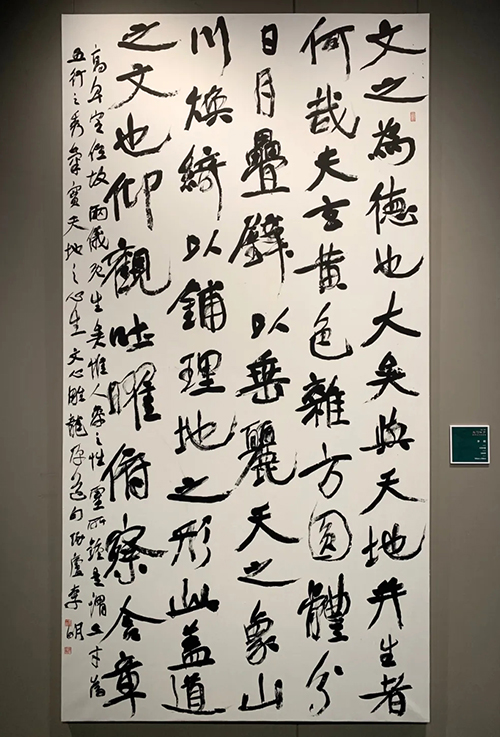 文之為德也大矣與天地并生者
何哉夫玄黃色雜方圓體分
日月疊璧以垂麗天之象山
川煥綺以鋪理地之形此蓋道
之文也仰觀吐曜俯察含章
高卑定位故兩儀既生矣惟人參之性靈所鍾是謂三才為
五行之秀氣實天地之心生文心雕龍原道句李明